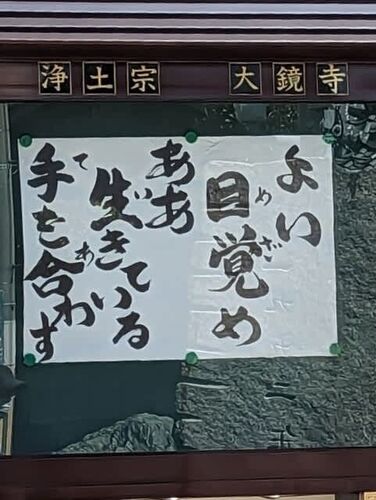 浄土宗 大鏡寺
よい
目覚め
ああ
生きている
手を合わす